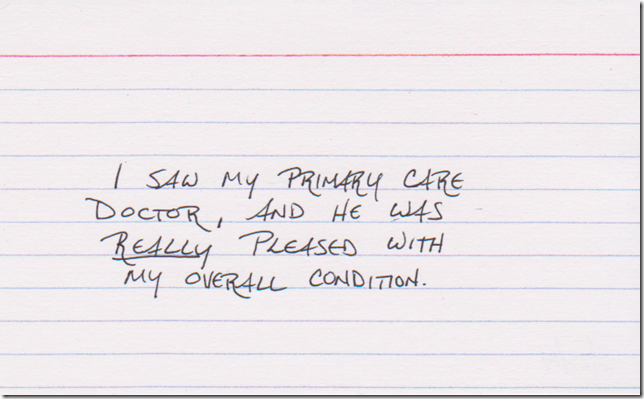 I SAW MY PRIMARY CARE
DOCTOR, AND HE WAS
REALLY PLEASED WITH
MY OVERALL CONDITION.